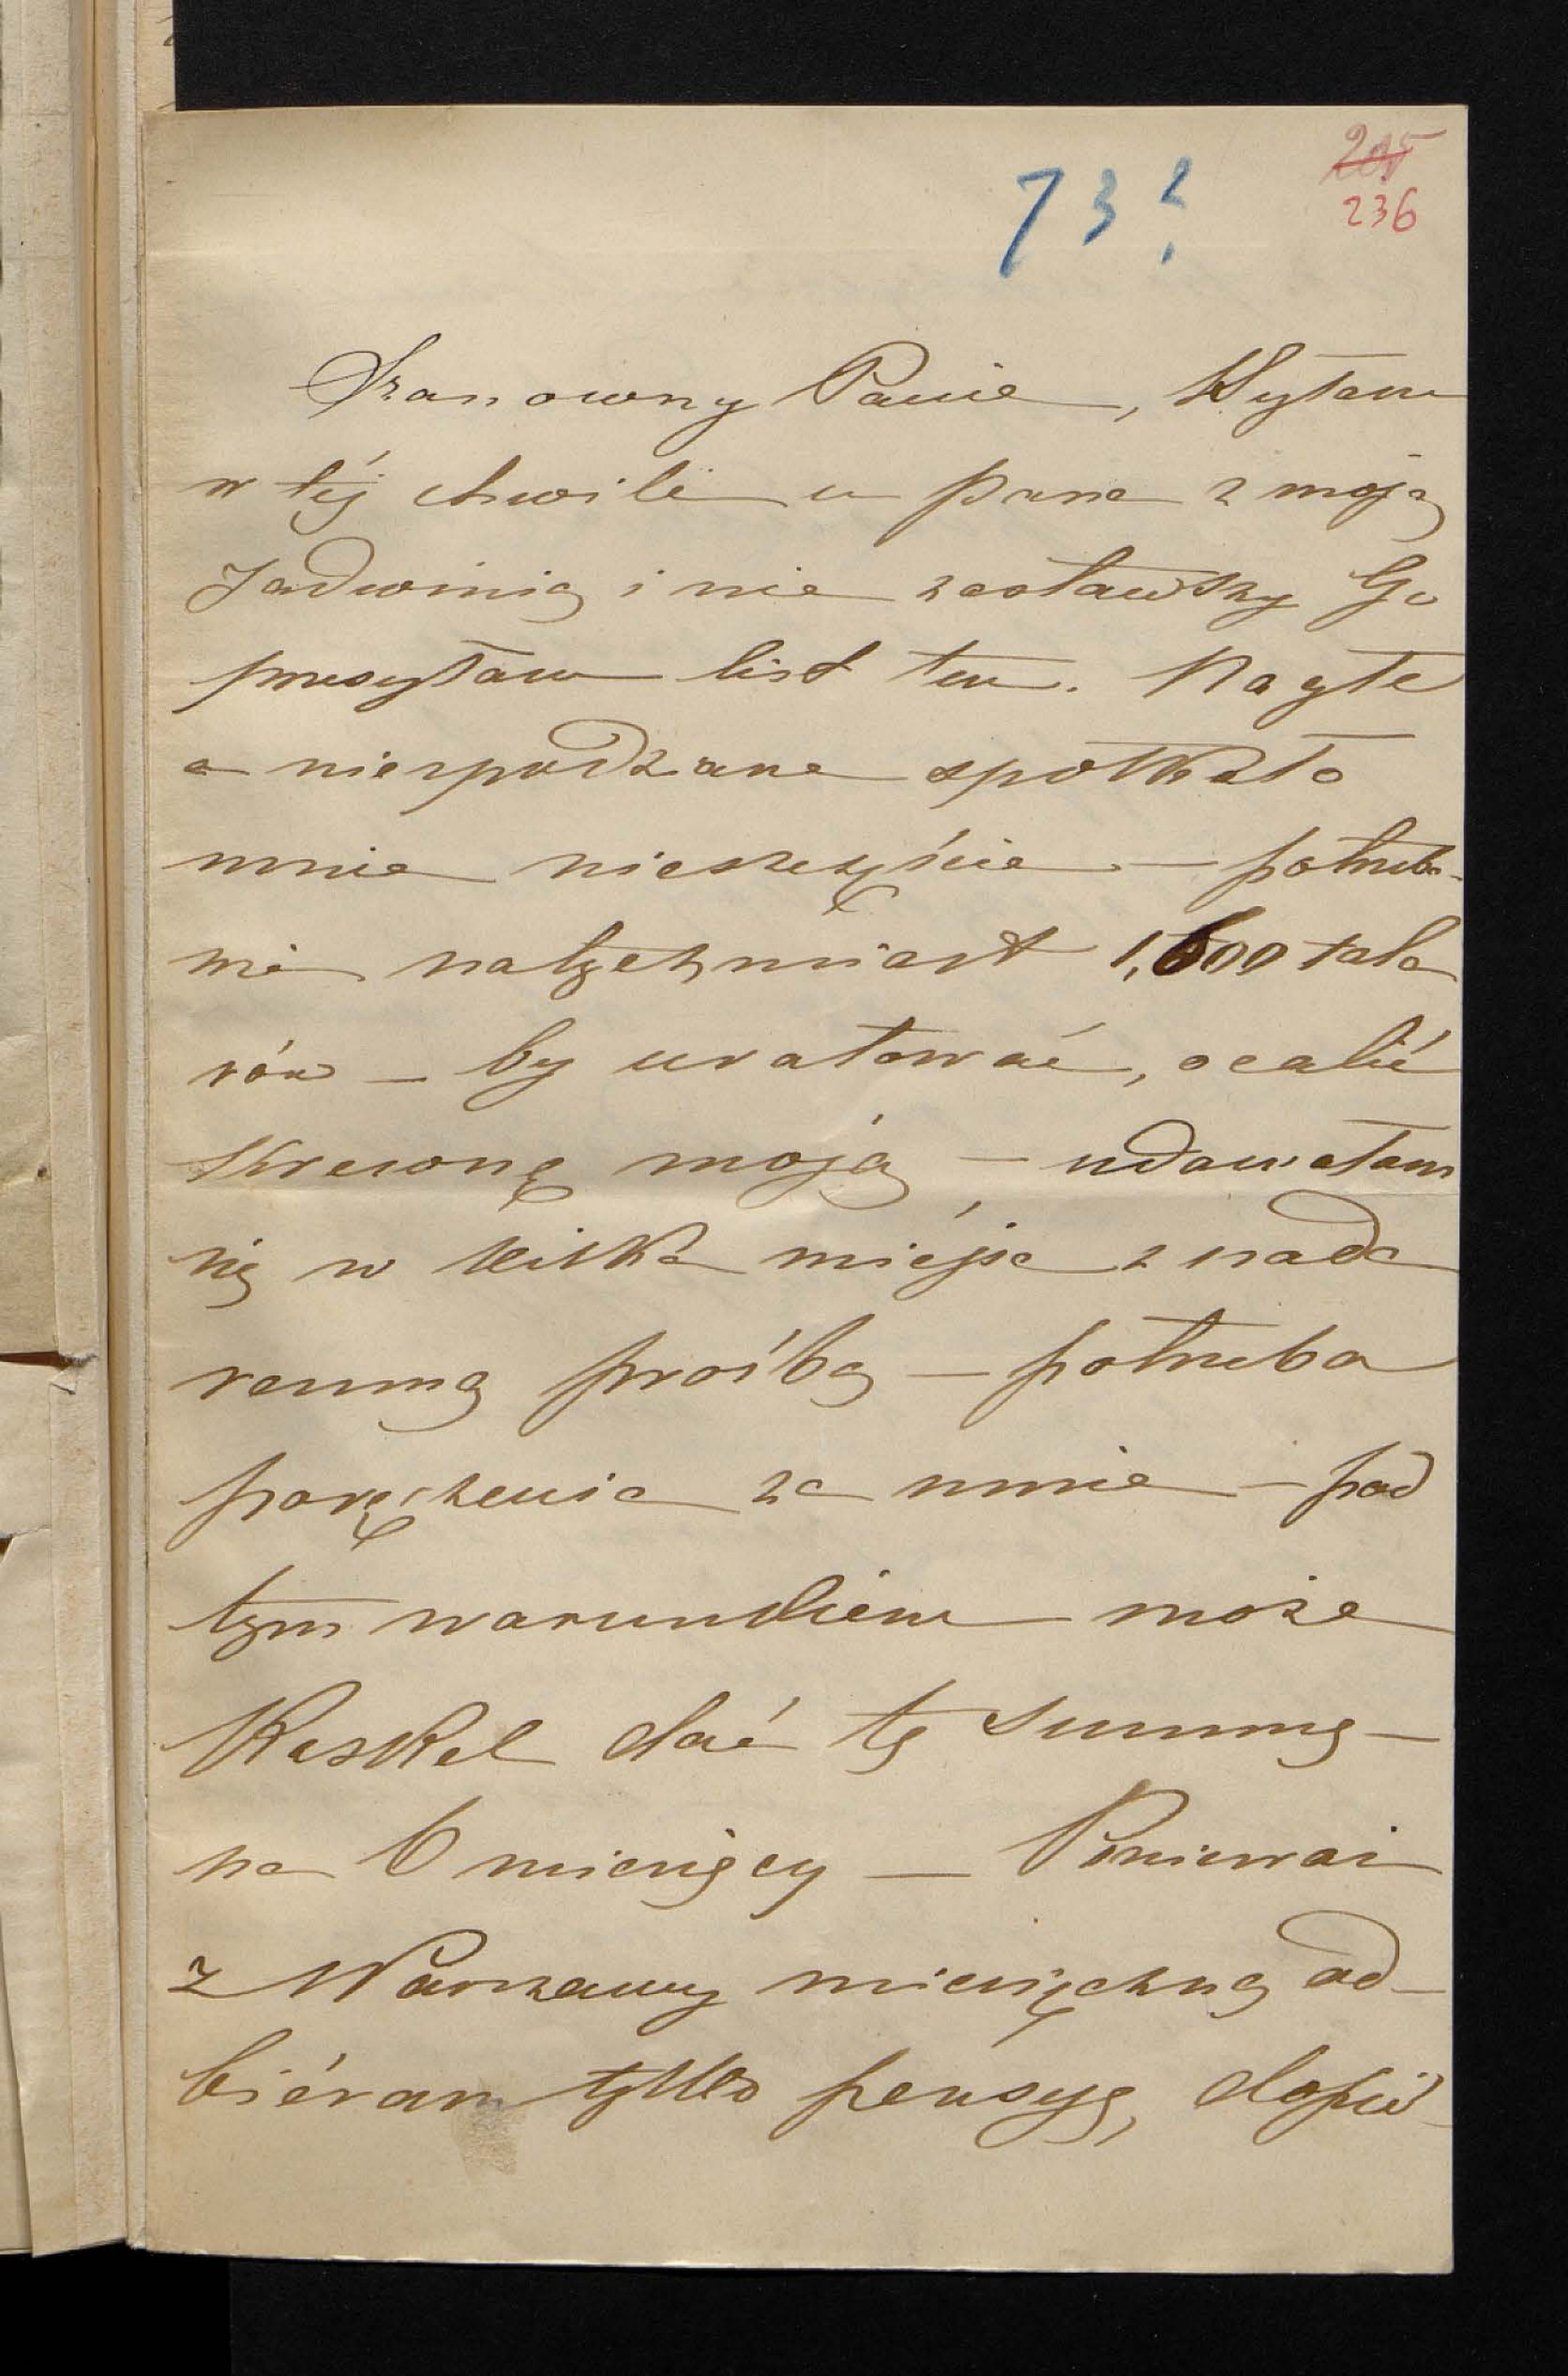 73?
205
236
Szanowny Panie, Byłam
w téj chwili u pana z moją
Jadwinią i nie zastawszy Go
przesyłam list ten. Nagłe
a niespodziane spotkało
mnie nieszczęście – potrzeba
mi natychmiast 1,600 tala
rów – by uratować, ocalić
krewonę moją – udawałam
się w kilka miéjsc z nada
remną prośbą – potrzeba
poręczenia za mnie – pod
tym warunkiem może
Kaskel dać tę summę –
na 6 miesięcy – Ponieważ
z Warszawy miesięczną od-
biéram tylko pensyę, dopié-